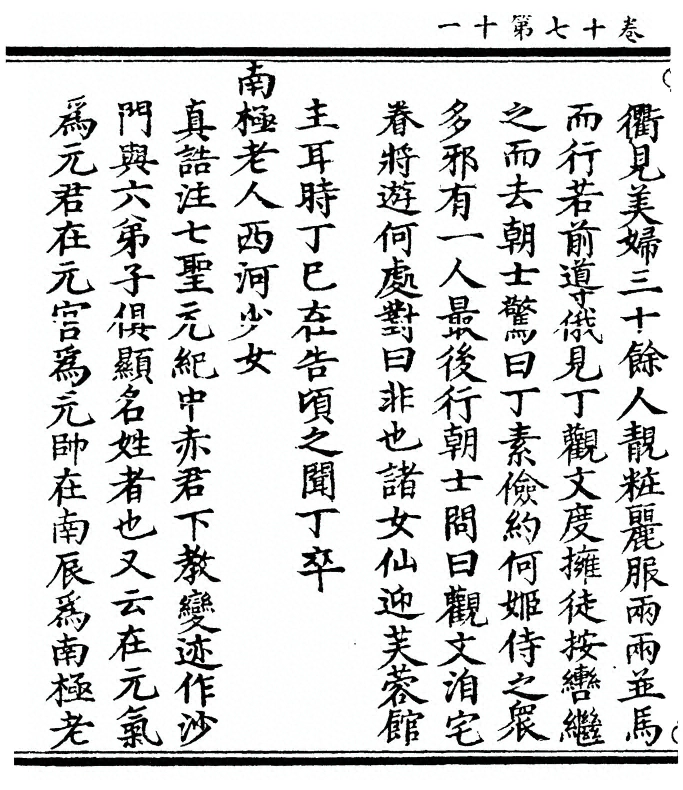 卷十七第十一
衢見美婦三十餘人靚粧麗服兩兩並馬
而行若前導俄見丁觀文度擁徒按轡繼
之而去朝士驚曰丁素儉約何姬侍之衆
多邪有一人最後行朝士問曰觀文洎宅
眷將遊何處對曰非也諸女仙迎芙蓉館
主耳時丁已在告頃之聞丁卒
南極老人西河少女
真誥注七聖玄紀中赤君下教變迹作沙
門與六弟子俱顯名姓者也又云在元氣
爲元君在元宮爲元帥在南辰爲南極老